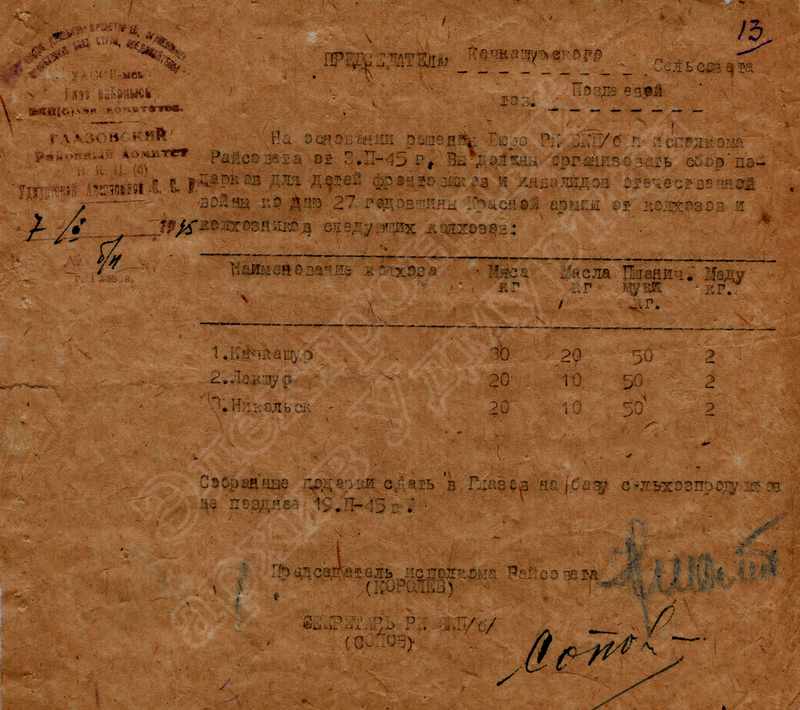 13
ПРЕДСЕДАТЕЛЮ Качкашурского Сельсовета
тов. Поздеевой
УАССР-ысь
ГЛАЗОВСКИЙ
Районный Комитет
В К П (б)
Удмуртской Автономной С. С. Р.
7/II 1945
№ б/н
г. Глазов.
На основании решения Бюро РК ВКП/б и исполкома
Райсовета от 3.П-45 г. Вы должны организовать сбор по-
дарков для детей фронтовиков и инвалидов отечественной
войны ко дню 27 годовщины Красной армии от колхозов и
колхозников следующих колхозов:
Наименование колхоза Мяса кг Масла кг Пшенич. муки кг. Меду кг.
1.Качкашур 30 20 50 2
2.Лекшур 20 10 50 2
3.Никольск 20 10 50 2
Собранные подарки сдать в Глазов на базу сельхозпродуктов
не позднее 19.П-45 г.
Председатель исполкома Райсовета
(КОРОЛЕВ)
СЕКРЕТАРЬ РК ВКП/б/
(СОПОВ)
Сопов